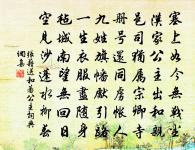 塞上如今無戰塵
漢家公主出和親
邑司猶屬宗卿寺
冊號還同虜帳人
九姓旗幡先引路
一生衣服盡隨身
氈城南望無回日
空見沙蓬水柳春
張籍送和蕃公主詞典
網集